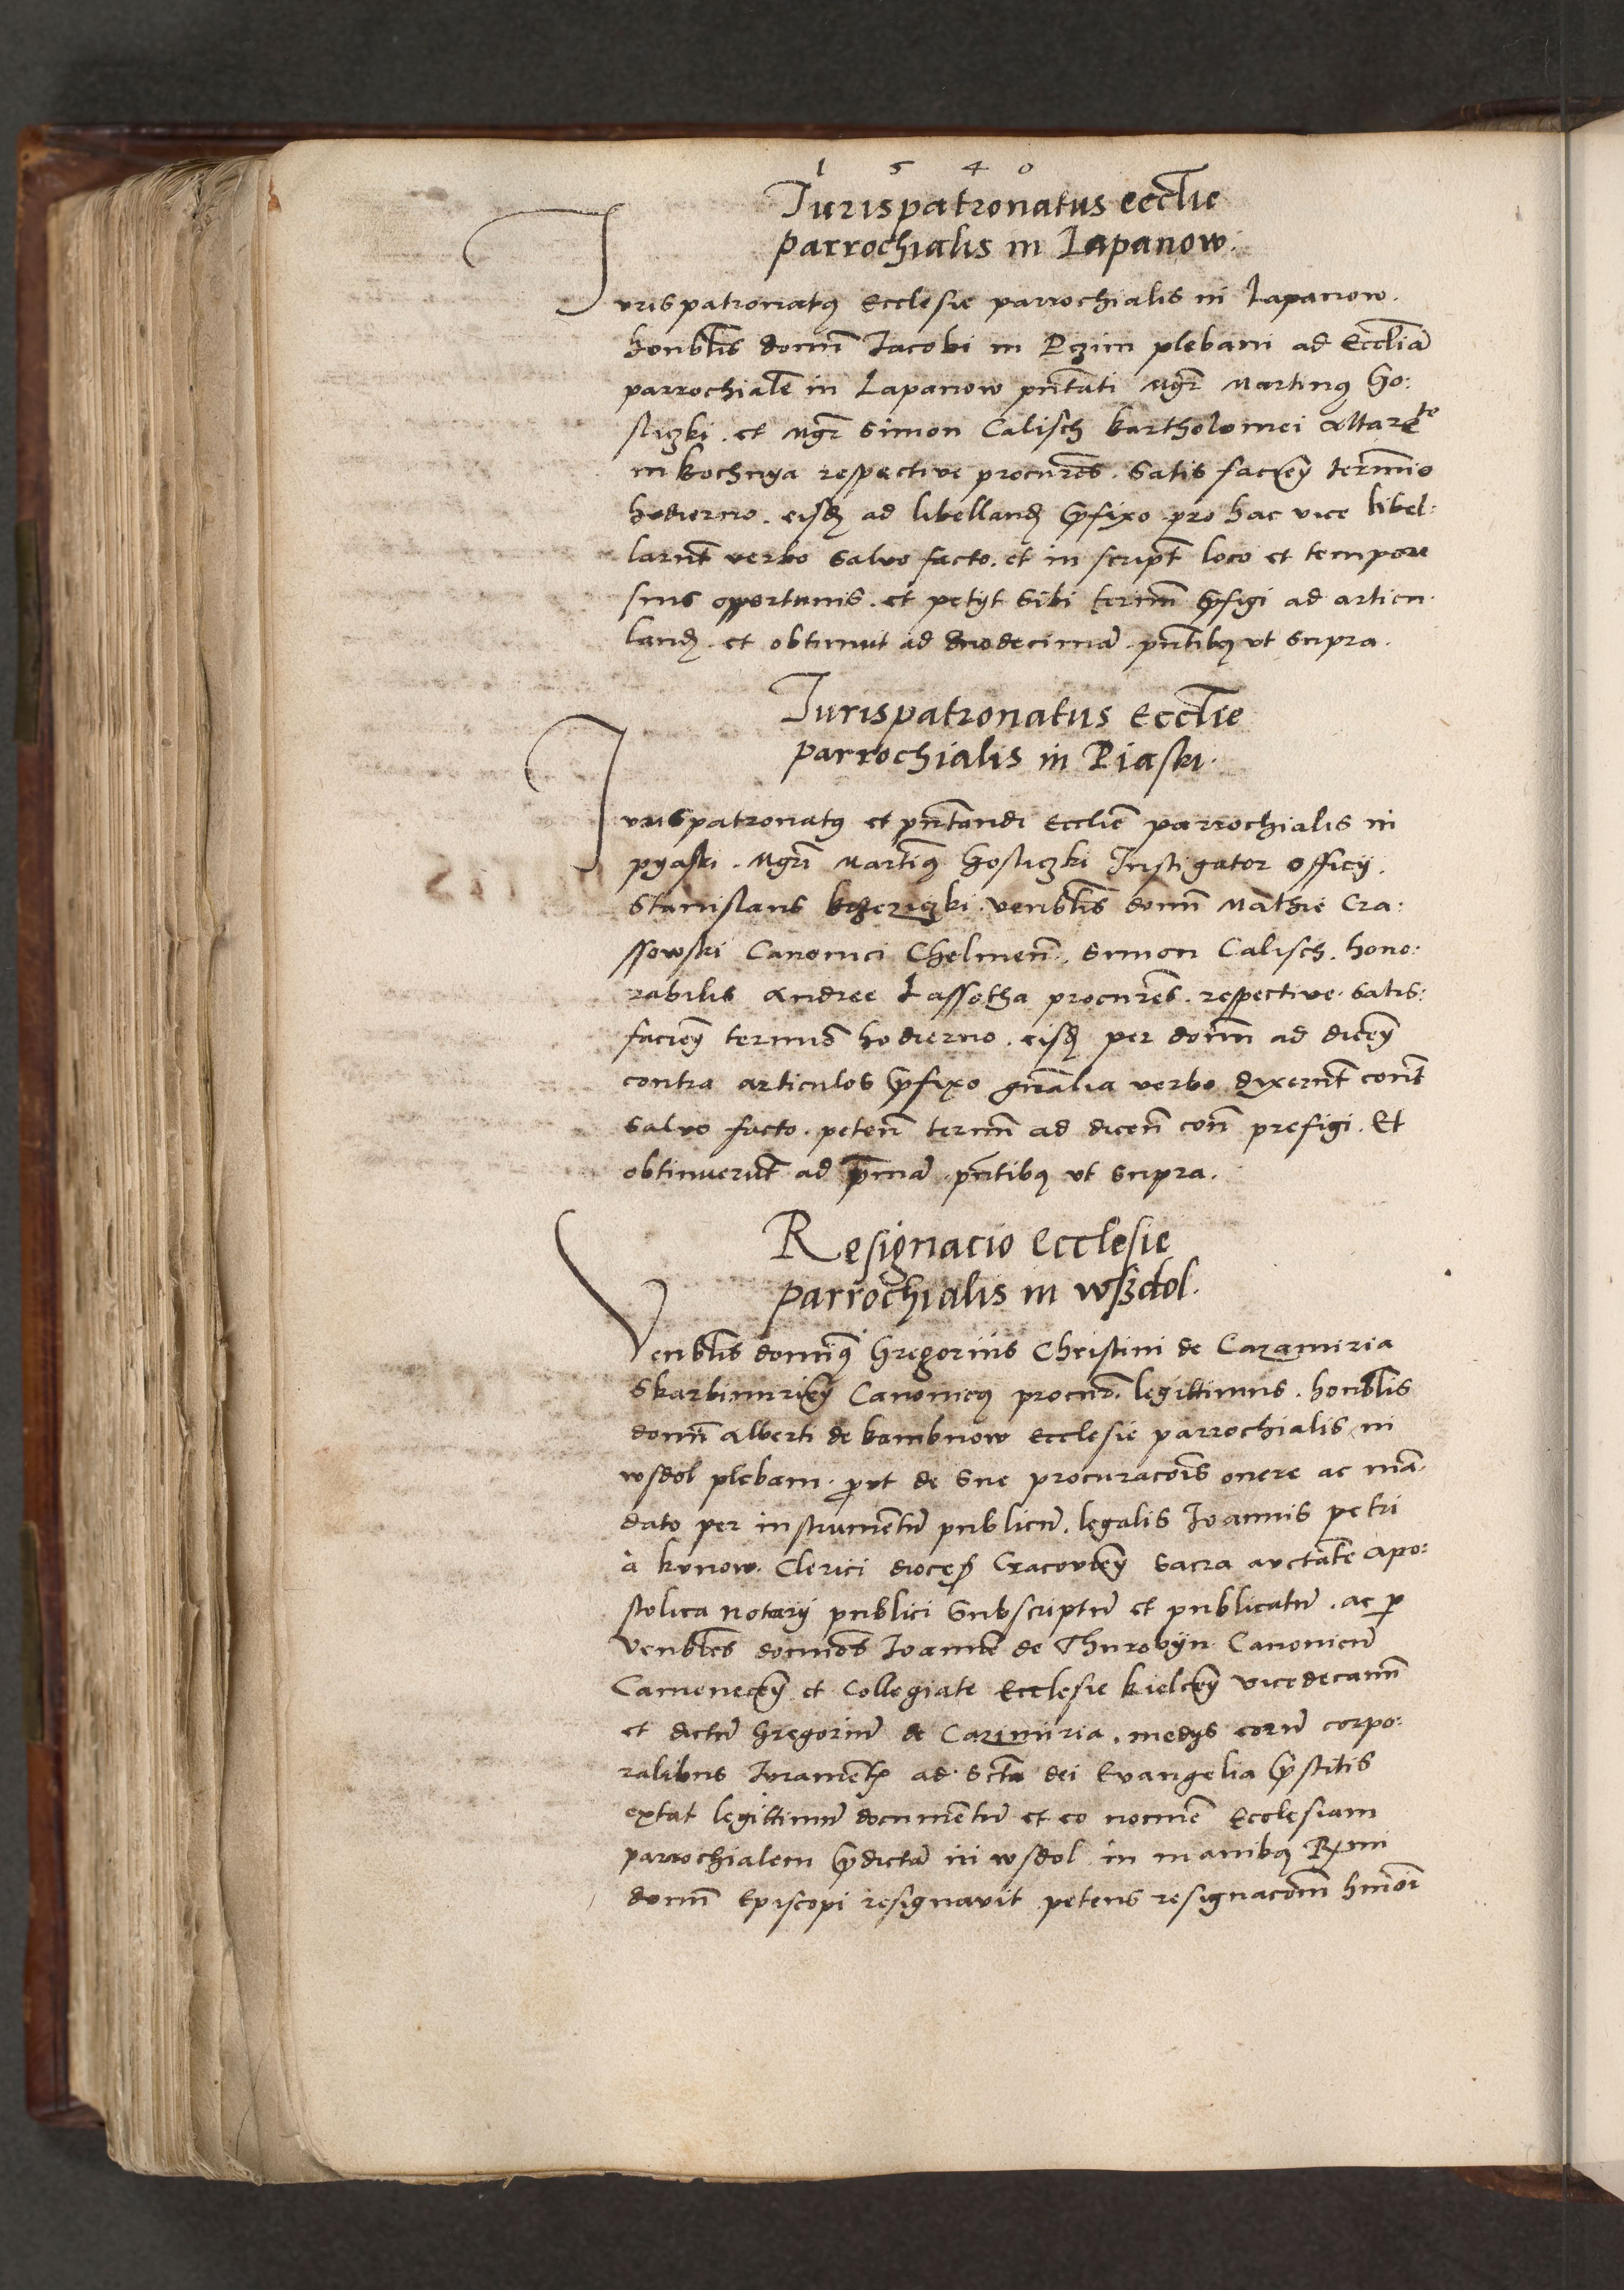 1 5 4 0
Jurispatronatus eccl̄ie
parrochialis in Lapanow.
Jurispatronatꝰ Ecclesie parrochialis in Lapanow.
honbl̄is domī Jacobi in Pczim plebani ad Eccl̄iā
parrochialē in Lapanow pn̄tati Mgr̄ Martinꝰ Go:
sliczki. et Mgr̄ Simon Calisch bartholomei altaristē
in bochnya respective procurēs. Satis facień termīo
hodierno. eisdꝫ ad libellandꝫ p̄fixo pro hac vice libel:
larūt verbo salvo facto. et in script̄ loco et tempore
suis opportunis. et petyt sibi termī p̄figi ad articu.
landꝫ. et obtinuit ad duodecimā pn̄tibꝰ ut supra.
Jurispatronatus Eccl̄ie
parrochialis in Piaski.
Jurispatronatꝰ et pn̄tandi Eccl̄ie parrochialis in
pyaski. Mgr̄i Martinꝰ Gosliczki Instigator officij.
Stanislaus venbl̄is domī Mathie Cra:
ssowski Canonici Chelmeñ. Simon Calisch. hono:
rabilis Andree Lassotha procurēs. respective. satis:
facień terminō hodierno. eisdꝫ per domī ad diceń
contra articulos p̄fixo gn̄alia verbo dixerūt cont̄
salvo facto. peteñ termī ad diceñ coñ prefigi. Et
obtinuerūt ad p̄mā pn̄tibꝰ ut supra.
Resignacio Ecclesie
parrochialis in wßdol.
Venbl̄is dominꝰ Gregorius Christini de Cazimiria
Skarbimirień Canonicꝰ procur̄. legittimus. honbl̄is
domī Alberti de bambnow Ecclesie parrochialis in
wsdol plebani. put de sue procuracōis onere ac mā.
dato per instrumentū publicū. legalis Joannis petri
à kunow. Clerici dioceꝭ Cracovień Sacra auctāte Apo:
stolica notarij publici Subscriptū et publicatū. ac ꝑ
Venbl̄es domīos Joannē de Thurobÿn Canonicū
Cameneceń et Collegiate Ecclesie kielceń vicedecanū
et dictū Gregoriū de Cazimiria. medijs eorū corpo:
ralibus Iuramentꝭ ad. Sctā dei Evangelia p̄stitis
extat legittimū documentū et eo nomīe Ecclesiam
parrochialem p̄dictā in wsdol in manibꝰ Rm̄i
domī Episcopi resignavit petens resignacōm hm̄oi